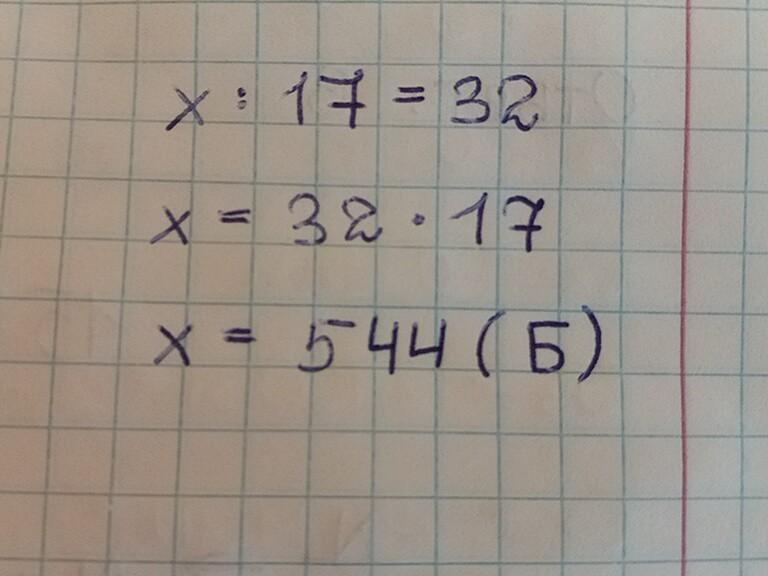 x : 17 = 32
x = 32 · 17
x = 544 (Б)